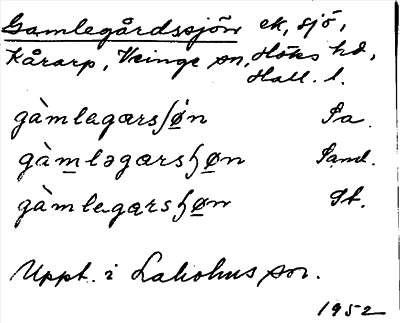 Gamlegårdssjön ek, sjö,
Kårarp, Veinge sn, Höks hd,
Hall. l.
gàmlagærsʃø̀n Sa.
gàm̲ləgærsɧø̲n Sand.
gàmlegærsɧø̲n St.
Uppt. i Laholms sn.
1952